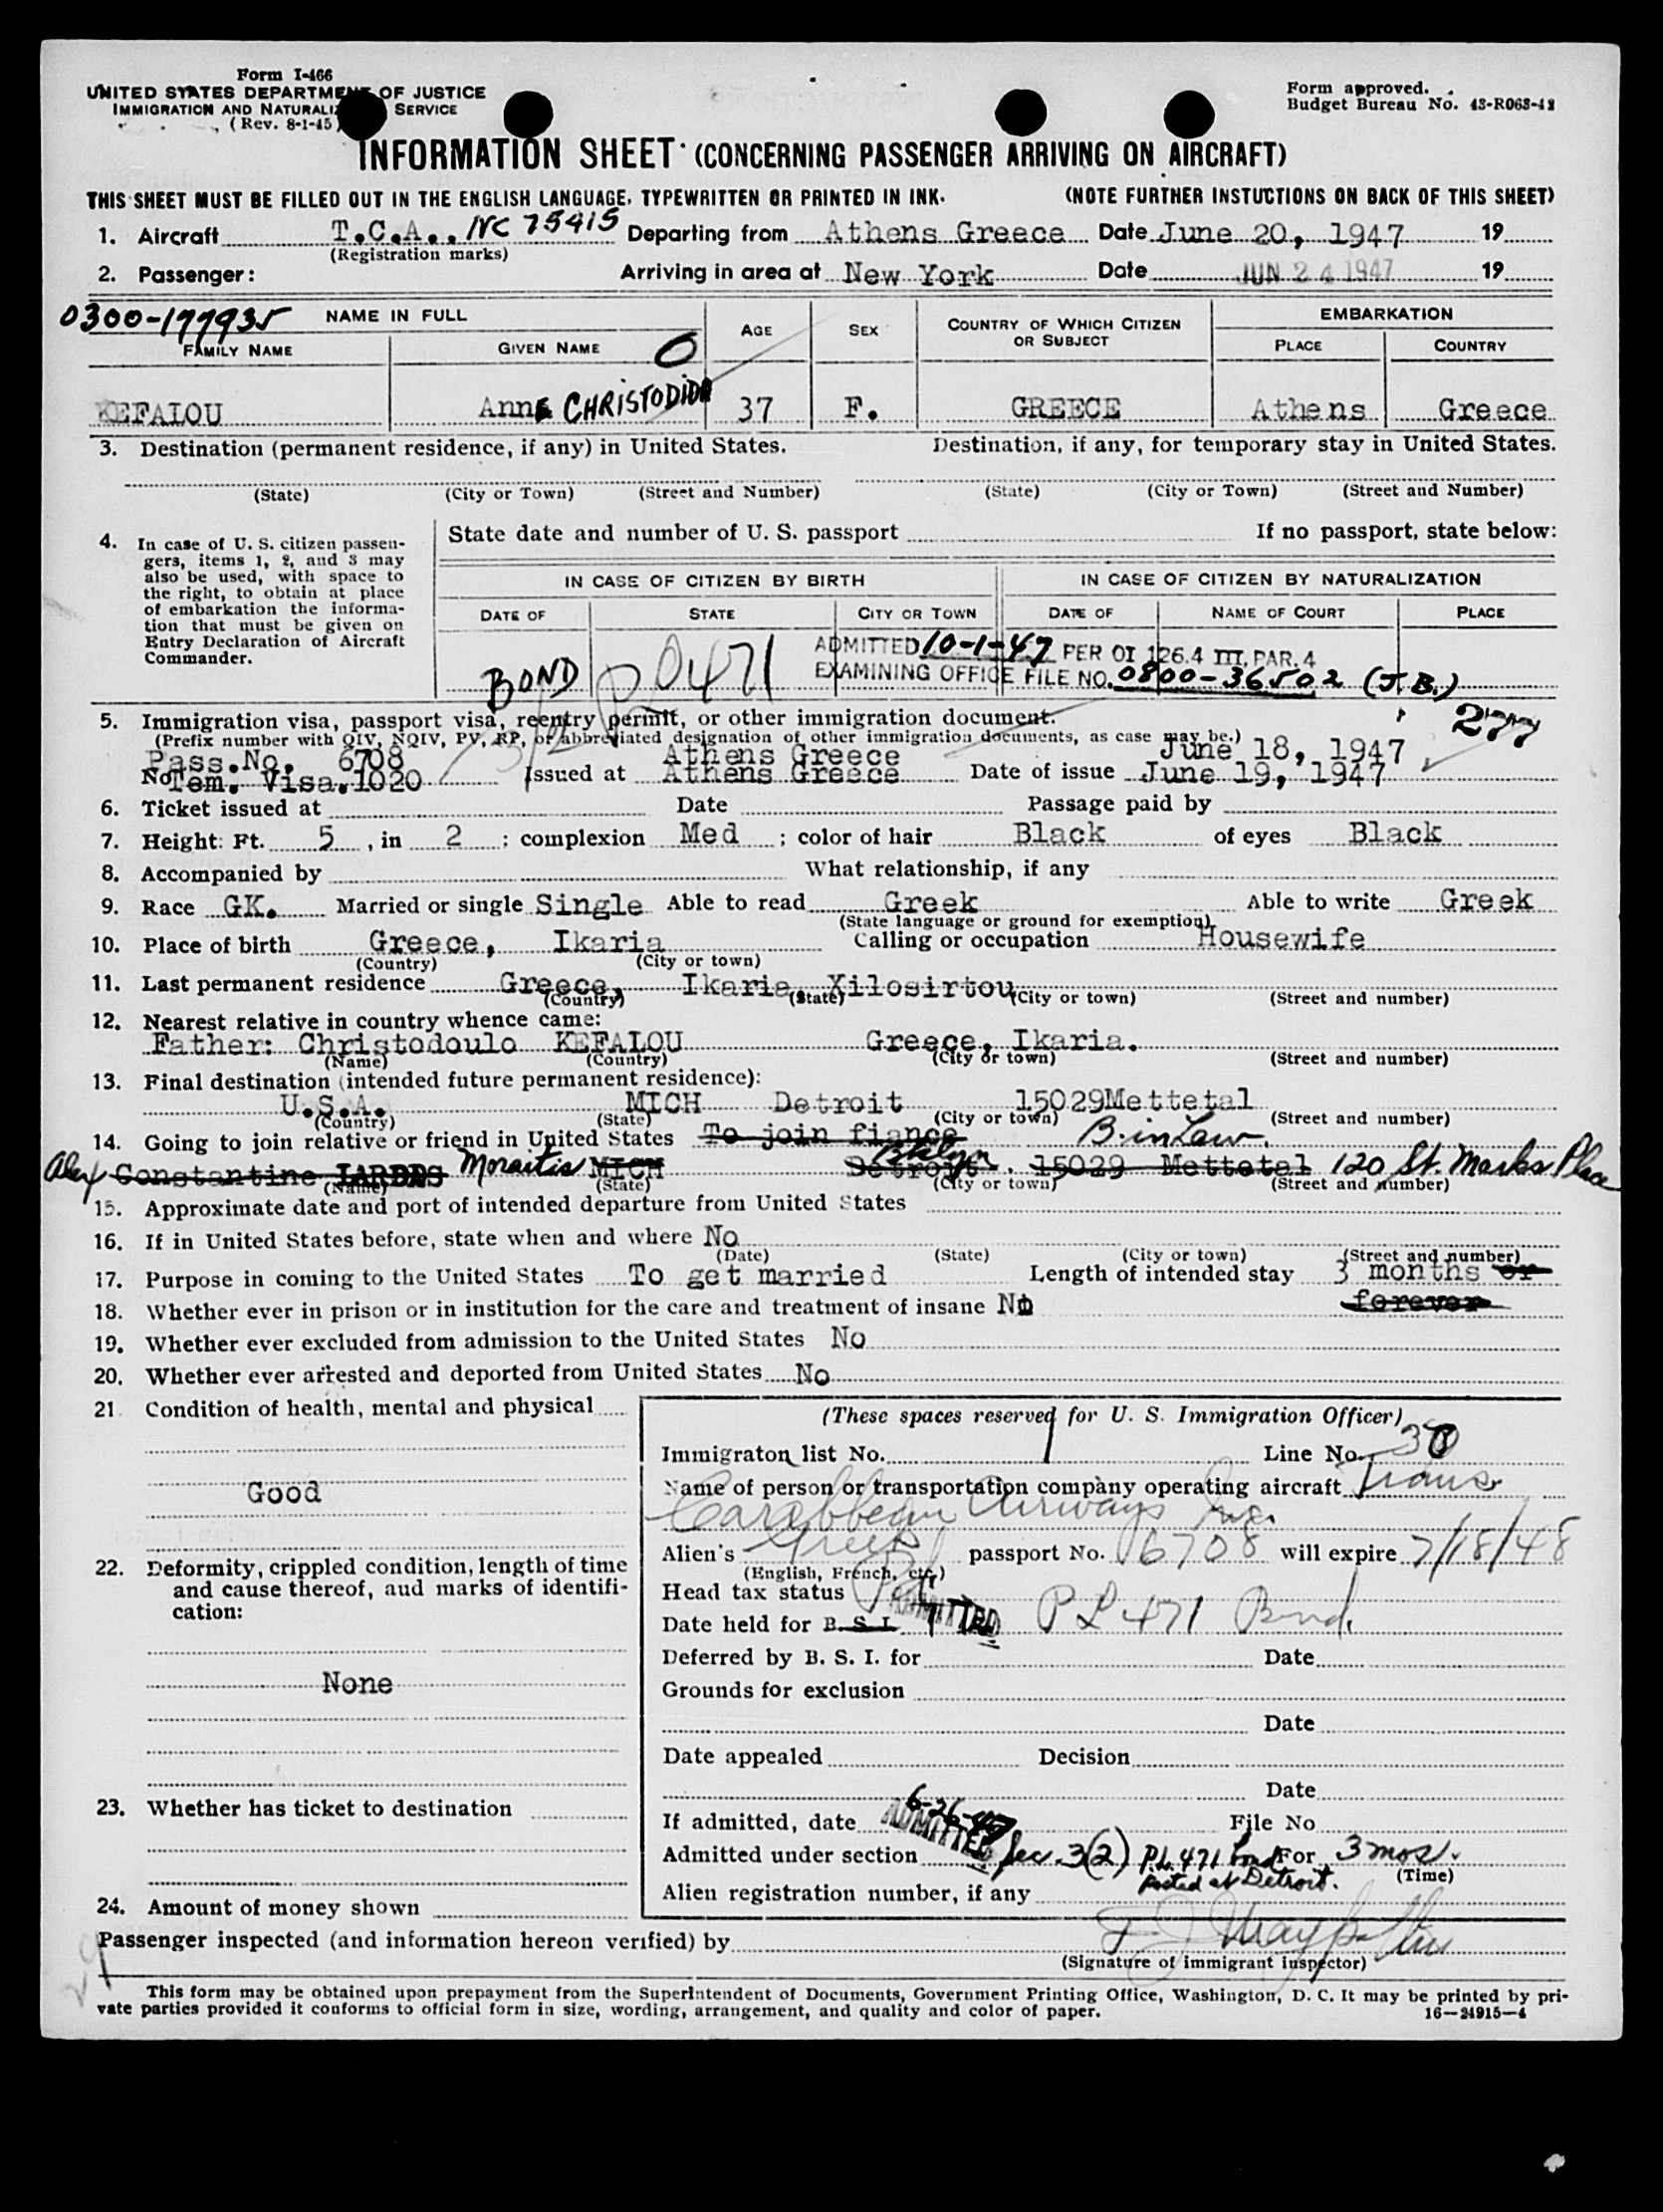 Form I-466
UNITED STATES DEPARTMENT OF JUSTICE
IMMIGRATION AND NATURALIZ SERVICE
(Rev. 8-1-45)
Form approved.
Budget Bureau No. 43-R063-42
INFORMATION SHEET (CONCERNING PASSENGER ARRIVING ON AIRCRAFT)
THIS SHEET MUST BE FILLED OUT IN THE ENGLISH LANGUAGE, TYPEWRITTEN OR PRINTED IN INK. (NOTE FURTHER INSTUCTIONS ON BACK OF THIS SHEET)
1. Aircraft T.C.A., NC 75415 Departing from Athens Greece Date June 20, 1947 19
(Registration marks)
2. Passenger: Arriving in area at New York Date JUN 24 1947 19
0300-177935 NAME IN FULL AGE SEX COUNTRY OF WHICH CITIZEN OR SUBJECT EMBARKATION
FAMILY NAME GIVEN NAME O PLACE COUNTRY
KEFALOU Anna CHRISTODIDA 37 F. GREECE Athens Greece
3. Destination (permanent residence, if any) in United States. Destination, if any, for temporary stay in United States.
(State) (City or Town) (Street and Number) (State) (City or Town) (Street and Number)
4. In case of U. S. citizen passengers, items 1, 2, and 3 may also be used, with space to the right, to obtain at place of embarkation the information that must be given on Entry Declaration of Aircraft Commander.
State date and number of U. S. passport If no passport, state below:
IN CASE OF CITIZEN BY BIRTH IN CASE OF CITIZEN BY NATURALIZATION
DATE OF STATE CITY OR TOWN DATE OF NAME OF COURT PLACE
BOND 0471 ADMITTED 10-1-47 PER OI 126.4 III, PAR. 4
EXAMINING OFFICE FILE NO. 0800-36502 (J.B.)
5. Immigration visa, passport visa, reentry permit, or other immigration document. 277
(Prefix number with QIV, NQIV, PV, RP, or abbreviated designation of other immigration documents, as case may be.)
Pass.No. 6708 Athens Greece June 18, 1947
No Tem. Visa.1020 Issued at Athens Greece Date of issue June 19, 1947
6. Ticket issued at Date Passage paid by
7. Height: Ft. 5, in 2; complexion Med; color of hair Black of eyes Black
8. Accompanied by What relationship, if any
9. Race GK. Married or single Single Able to read Greek Able to write Greek
(State language or ground for exemption)
10. Place of birth Greece, Ikaria Calling or occupation Housewife
(Country) (City or town)
11. Last permanent residence Greece, Ikaria, Xilosirtou
(Country) (State) (City or town) (Street and number)
12. Nearest relative in country whence came:
Father: Christodoulo KEFALOU Greece, Ikaria.
(Name) (Country) (City or town) (Street and number)
13. Final destination (intended future permanent residence):
U.S.A. MICH Detroit 15029Mettetal
(Country) (State) (City or town) (Street and number)
14. Going to join relative or friend in United States To join fiance B. in Law.
Alex Constantine Moraitis MICH Detroit Bklyn. 15029 Mettetal 120 St. Marks Place
(Name) (State) (City or town) (Street and number)
15. Approximate date and port of intended departure from United States
16. If in United States before, state when and where No
(Date) (State) (City or town) (Street and number)
17. Purpose in coming to the United States To get married Length of intended stay 3 months or
forever
18. Whether ever in prison or in institution for the care and treatment of insane No
19. Whether ever excluded from admission to the United States No
20. Whether ever arrested and deported from United States No
21. Condition of health, mental and physical
Good
22. Deformity, crippled condition, length of time and cause thereof, aud marks of identification:
None
23. Whether has ticket to destination
24. Amount of money shown
(These spaces reserved for U. S. Immigration Officer)
Immigraton list No. 1 Line No. 30
Name of person or transportation company operating aircraft Trans
Caribbean Airways Inc.
Alien's Greek passport No. 6708 will expire 7/18/48
(English, French, etc.)
Head tax status
Date held for B. S. I. ADMITTED PL 471 Bond.
Deferred by B. S. I. for Date
Grounds for exclusion
Date
Date appealed Decision
Date
If admitted, date 6-26-47 ADMITTED File No
Admitted under section Sec. 3(2) P.L. 471 Bond For 3 mos.
posted at Detroit. (Time)
Alien registration number, if any
Passenger inspected (and information hereon verified) by
(Signature of immigrant inspector)
This form may be obtained upon prepayment from the Superintendent of Documents, Government Printing Office, Washington, D. C. It may be printed by private parties provided it conforms to official form in size, wording, arrangement, and quality and color of paper. 16—24915-4